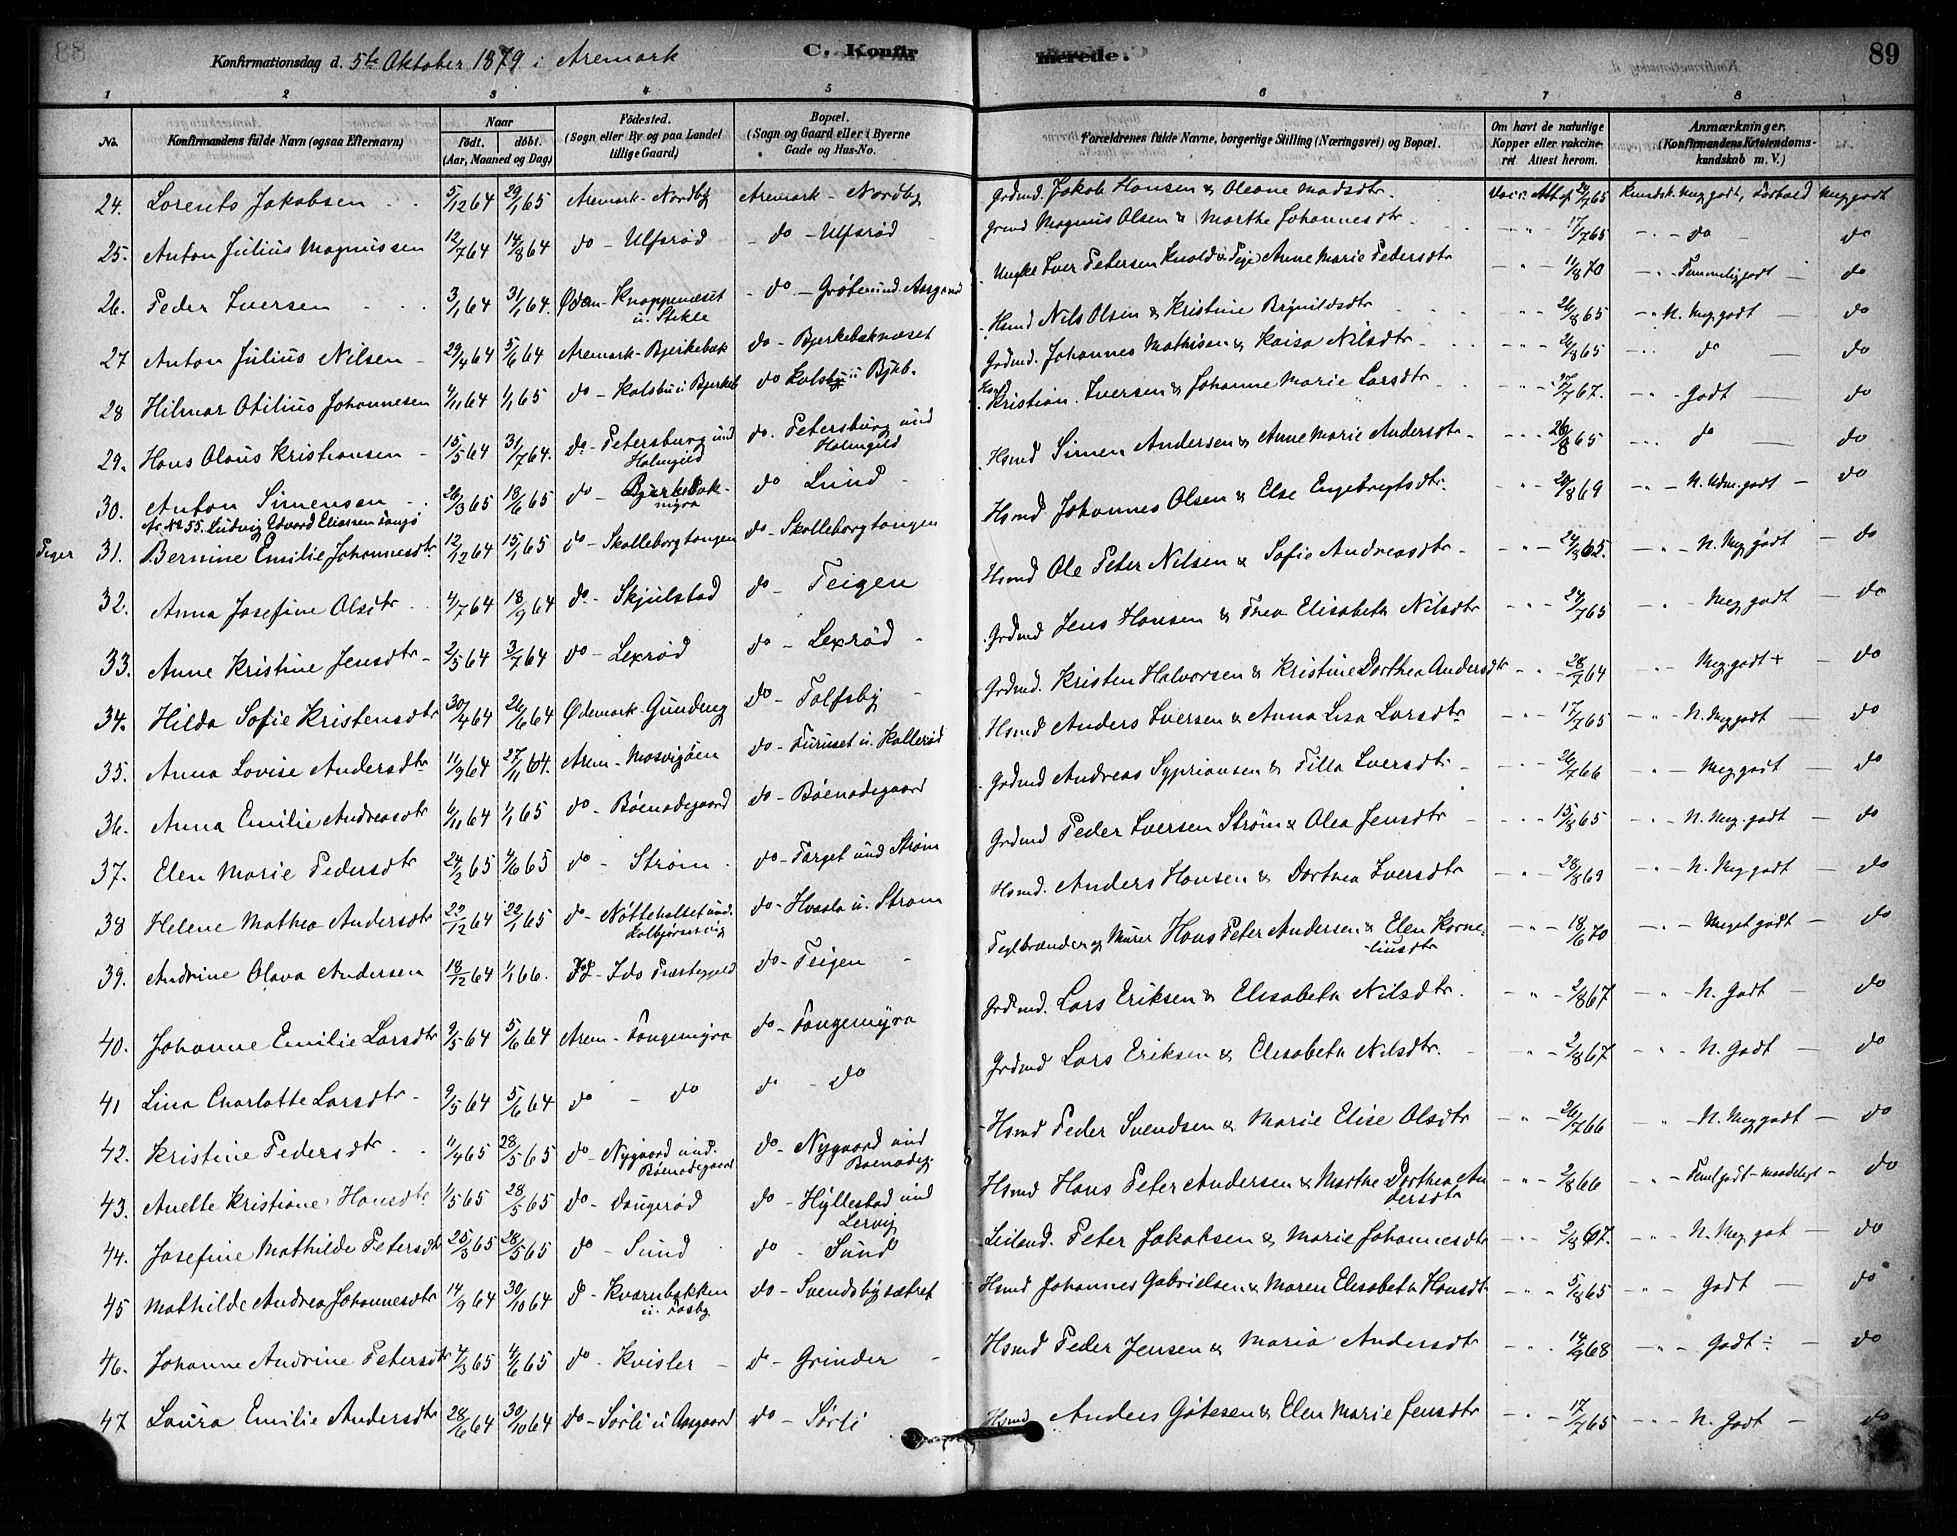 Konfirmationsdag d. 5te Oktober 1879 i Aremark
C. Konfirmerede.
89
1 2 3 4 5 6 7 8
No. | Konfirmandens fulde Navn (ogsaa Efternavn) | Naar født. døbt. (Aar, Maaned og Dag) | Fødested. (Sogn eller By og paa Landet tillige Gaard) | Bopæl. (Sogn og Gaard eller i Byerne Gade og Hus-No. | Forældrenes fulde Navne, borgerlige Stilling (Næringsvei) og Bopæl. | Om havt de naturlige Kopper eller vaccineret. Attest herom. | Anmærkninger. (Konfirmandens Kristendomskundskab m. V.)
24. Lorents Jakobsen 5/12 64 29/1 65 Aremark - Nordby Aremark - Nordby Grdmd. Jakob Hansen & Oleane Madsdtr. Vacc. Att af 24/7 65 Kundsk. Meg godt, Forhold Meg godt
25. Anton Julius Magnussen 12/7 64 14/8 64 do - Ulfsrød do - Ulfsrød Grmd Magnus Olsen & Marthe Johannesdtr. 17/7 65 do do
26. Peder Iversen 3/1 64 31/1 64. Ødem - Knappenæset u. Stikle do - Grøtmund. Aasgaard Ungkr Iver Petersen Knold & Pige Anne Marie Pedersdtr 11/8 70 Temmelig godt do
27 Anton Julius Nilsen 29/4 64 5/6 64 Aremark - Bjerkebæk do - Bjerkebæknæset Hsmd Nils Olsen & Kristine Brynildsdtr 26/8 65 N. Meg godt do
28 Hilmar Otilius Johannesen 4/11 64 1/1 65 do - Kolsbu u Bjerkeb do Kolsbu u Bjkb. Grdmd. Johannes Mathisen & Kaisa Nilsdtr 26/8 65 do do
29. Hans Olaus Kristiansen 15/5 64 31/7 64. do - Petersburg und Holmgild do. Petersburg und Holmgild Kristian Iversen & Johanne Marie Larsdtr 27/7 67. Godt do
30. Anton Simensen 26/3 65 18/6 65 do - Bjerkebæk-myra do Lund Hsmd Simen Andersen & Anne Marie Andersdtr 26/8 65 do do
fr No 55. Ludvig Edvard Eliassen
Piger 31. Bernine Emilie Johannesdtr 12/12 64 15/1 65 do - Skolleborgtangen do - Skolleborgtangen Hsmd Johannes Olsen & Else Engebregtsdtr. 20/8 69 N. Udm. godt do
32. Anna Josefine Olsdtr 4/7 64 18/9 64 do - Skjulstad do - Teigen Hsmd Ole Peter Nilsen & Sofie Andreasdtr 24/8 65. N. Meg godt do
33. Anne Kristine Jensdtr 2/5 64 3/7 64 do - Lexrød do - Lexrød Grdmd. Jens Hansen & Thea Elisabeth Nilsdtr 24/7 65 Meg godt do
34. Hilda Sofie Kristensdtr 30/4 64 26/6 64 Ødemark - Gundeng do - Tolfsby Grdmd. Kristen Halvorsen & Kristine Dorthea Andersdtr 28/7 64 Meg godt + do
35. Anna Lovise Andersdtr 11/9 64 27/11 64. Arem - Mosvigøen do - Furuset u. Kollerød Hsmd Anders Iversen & Anna Lisa Larsdtr 17/7 65 N. Meg godt do
36. Anna Emilie Andreasdtr 6/11 64 1/1 65 do - Bøenødegaard do - Bøenødegaard Grdmd Andreas Syprianssen & Tilla Iversdtr 26/7 66 Meg godt do
37. Elen Marie Pedersdtr 24/2 65 4/6 65 do - Strøm do - Torget und Strøm Grdmd Peder Iversen Strøm & Olea Jensdtr 15/8 65 N. Meg. godt do
38 Helene Mathea Andersdtr 22/12 64 22/1 65 do - Nøtteholtet und. Kolbjørnsvig do - Hvasla u. Strøm Hsmd. Anders Hansen & Dorthea Iversdtr 28/8 69 N. Meg godt do
39. Andrine Olava Andersen 18/12 64 1/1 66. Id - Idd Præstegjeld do - Teigen Teglbrænder og Murer Hans Peter Andersen & Elen Korneliusdtr 18/6 70 Meget godt do
40. Johanne Emilie Larsdtr 9/5 64 5/6 64 Arem - Tangemyra do - Tangemyra Grdmd. Lars Eriksen & Elisabeth Nilsdtr. 2/8 67 N. Godt do
41 Lina Charlotte Larsdtr 9/5 64 5/6 64 do - do do - do Grdmd Lars Eriksen & Elisabeth Nilsdtr. 2/8 67 N. Godt do
42. Kristine Pedersdtr 11/4 65 28/5 65 do - Nygaard und. Bøenødegaard do - Nygaard und Boenødeg Hsmd Peder Svendsen & Marie Elise Olsdtr 26/7 66 N. Meg godt do
43. Anette Kristiane Hansdtr 1/5 65 28/5 65 do - Daugerød do - Hyllestad und Lervig Hsmd Hans Peter Andersen & Marthe Dorthea Andersdtr 2/8 66 Teml godt - maadeligt do
44. Josefine Mathilde Petersdtr 25/3 65 28/5 65 do - Sund do - Sund Leiland. Peter Jakobsen & Marie Johannesdtr 2/8 67. N. Meg got do
45 Mathilde Andrea Johannesdtr 14/9 64 30/10 64 d - Kvarnbakken u. Fosby do - Svendsbysætret Hsmd Johannes Gabrielsen & Maren Elisabeth Hansdtr 5/8 65 Godt do
46. Johanne Andrine Petersdtr 4/3 65 4/6 65 do - Kvisler d - Grinder Hsmd Peder Jensen & Maria Andersdtr 14/9 68 Godt ÷ do
47 Laura Emilie Andersdtr 28/6 64 30/10 64 do - Sørli u Aasgaard do - Sørli Hsmd Anders Gøtesen & Elen Marie Jensdtr 17/7 65 N. Godt do